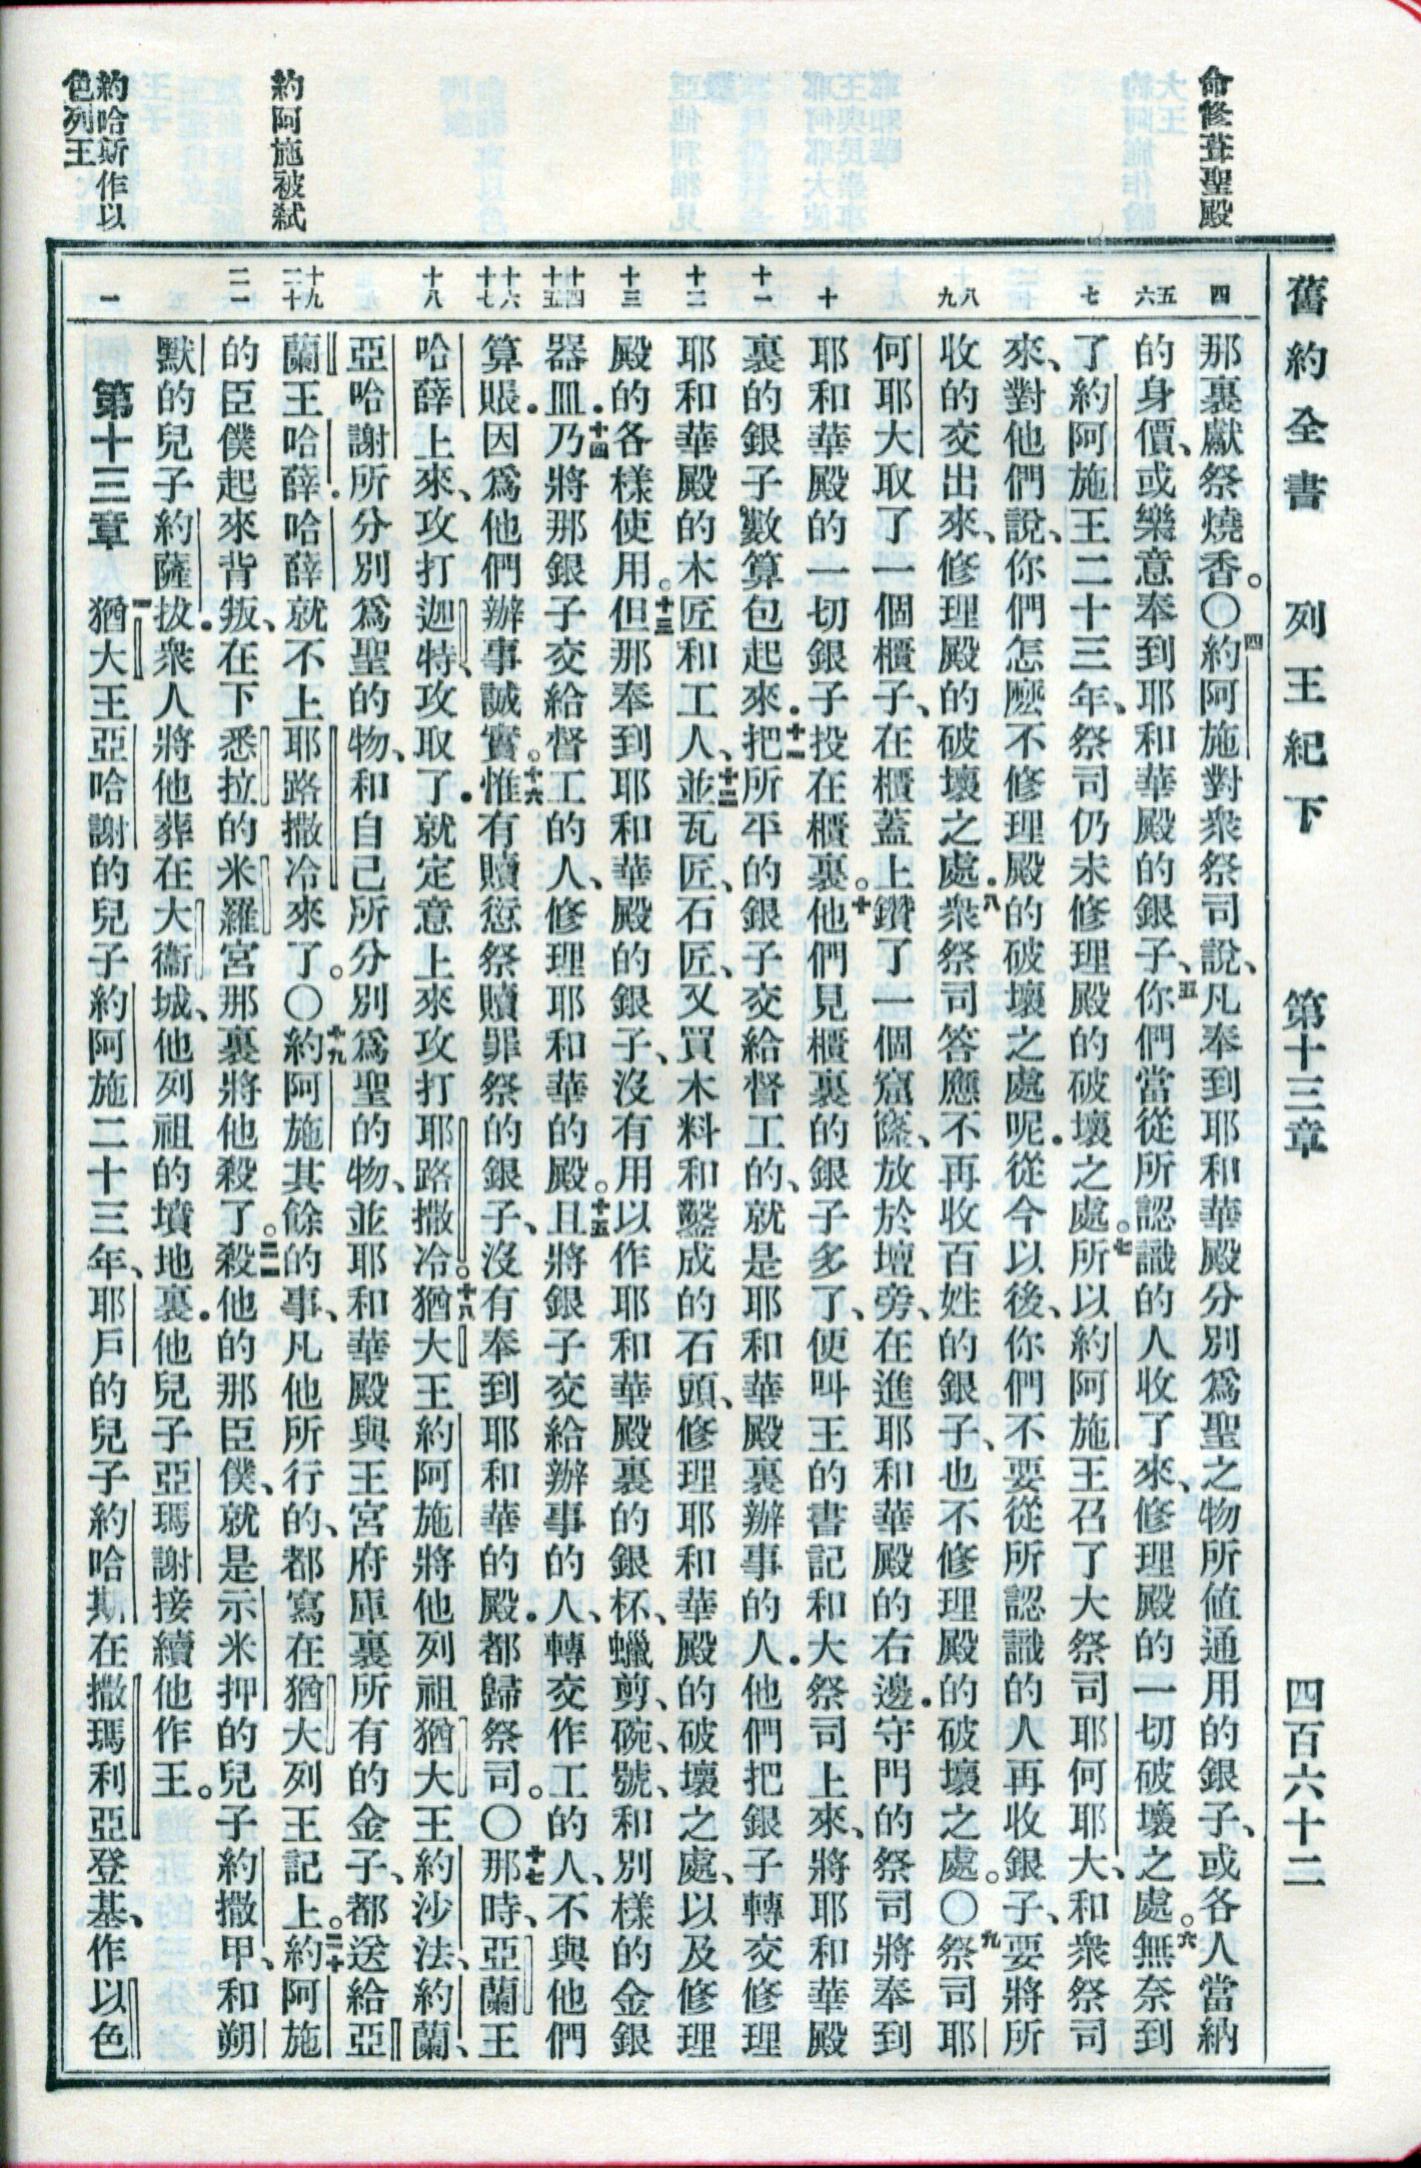 舊約全書　列王紀下　第十三章　四百六十二
命修葺聖殿
約阿施被弑
約哈斯作以
色列王
四
五
六
七
八
九
十
十一
十二
十三
十四
十五
十六
十七
十八
十九
二十
二一
一
那裏獻祭燒香。〇四約阿施對衆祭司說、凡奉到耶和華殿分別爲聖之物所値通用的銀子、或各人當納
的身價、或樂意奉到耶和華殿的銀子、五你們當從所認識的人收了來、修理殿的一切破壞之處。六無奈到
了約阿施王二十三年、祭司仍未修理殿的破壞之處。七所以約阿施王召了大祭司耶何耶大、和衆祭司
來、對他們說、你們怎麽不修理殿的破壞之處呢．從今以後、你們不要從所認識的人再收銀子、要將所
收的交出來、修理殿的破壞之處．八衆祭司答應不再收百姓的銀子、也不修理殿的破壞之處。〇九祭司耶
何耶大取了一個櫃子、在櫃蓋上鑽了一個窟窿、放於壇旁、在進耶和華殿的右邊．守門的祭司將奉到
耶和華殿的一切銀子投在櫃裏。十他們見櫃裏的銀子多了、便叫王的書記和大祭司上來、將耶和華殿
裏的銀子數算包起來．十一把所平的銀子交給督工的、就是耶和華殿裏辦事的人．他們把銀子轉交修理
耶和華殿的木匠和工人、十二並瓦匠、石匠、又買木料和鑿成的石頭、修理耶和華殿的破壞之處、以及修理
殿的各樣使用。十三但那奉到耶和華殿的銀子、沒有用以作耶和華殿裏的銀杯、蠟剪、碗、號、和別樣的金銀
器皿．十四乃將那銀子交給督工的人、修理耶和華的殿。十五且將銀子交給辦事的人、轉交作工的人、不與他們
算賬．因爲他們辦事誠實。十六惟有贖愆祭贖罪祭的銀子、沒有奉到耶和華的殿．都歸祭司。〇十七那時、亞蘭王
哈薛上來、攻打迦特、攻取了．就定意上來攻打耶路撒冷。十八猶大王約阿施將他列祖猶大王約沙法、約蘭、
亞哈謝所分別爲聖的物、和自己所分別爲聖的物、並耶和華殿與王宮府庫裏所有的金子、都送給亞
蘭王哈薛．哈薛就不上耶路撒冷來了。〇十九約阿施其餘的事、凡他所行的、都寫在猶大列王記上。二十約阿施
的臣僕起來背叛、在下悉拉的米羅宮那裏將他殺了。二一殺他的那臣僕、就是示米押的兒子約撒甲、和朔
默的兒子約薩拔．衆人將他葬在大衞城、他列祖的墳地裏．他兒子亞瑪謝接續他作王。
第十三章　一猶大王亞哈謝的兒子約阿施二十三年、耶戶的兒子約哈斯在撒瑪利亞登基、作以色